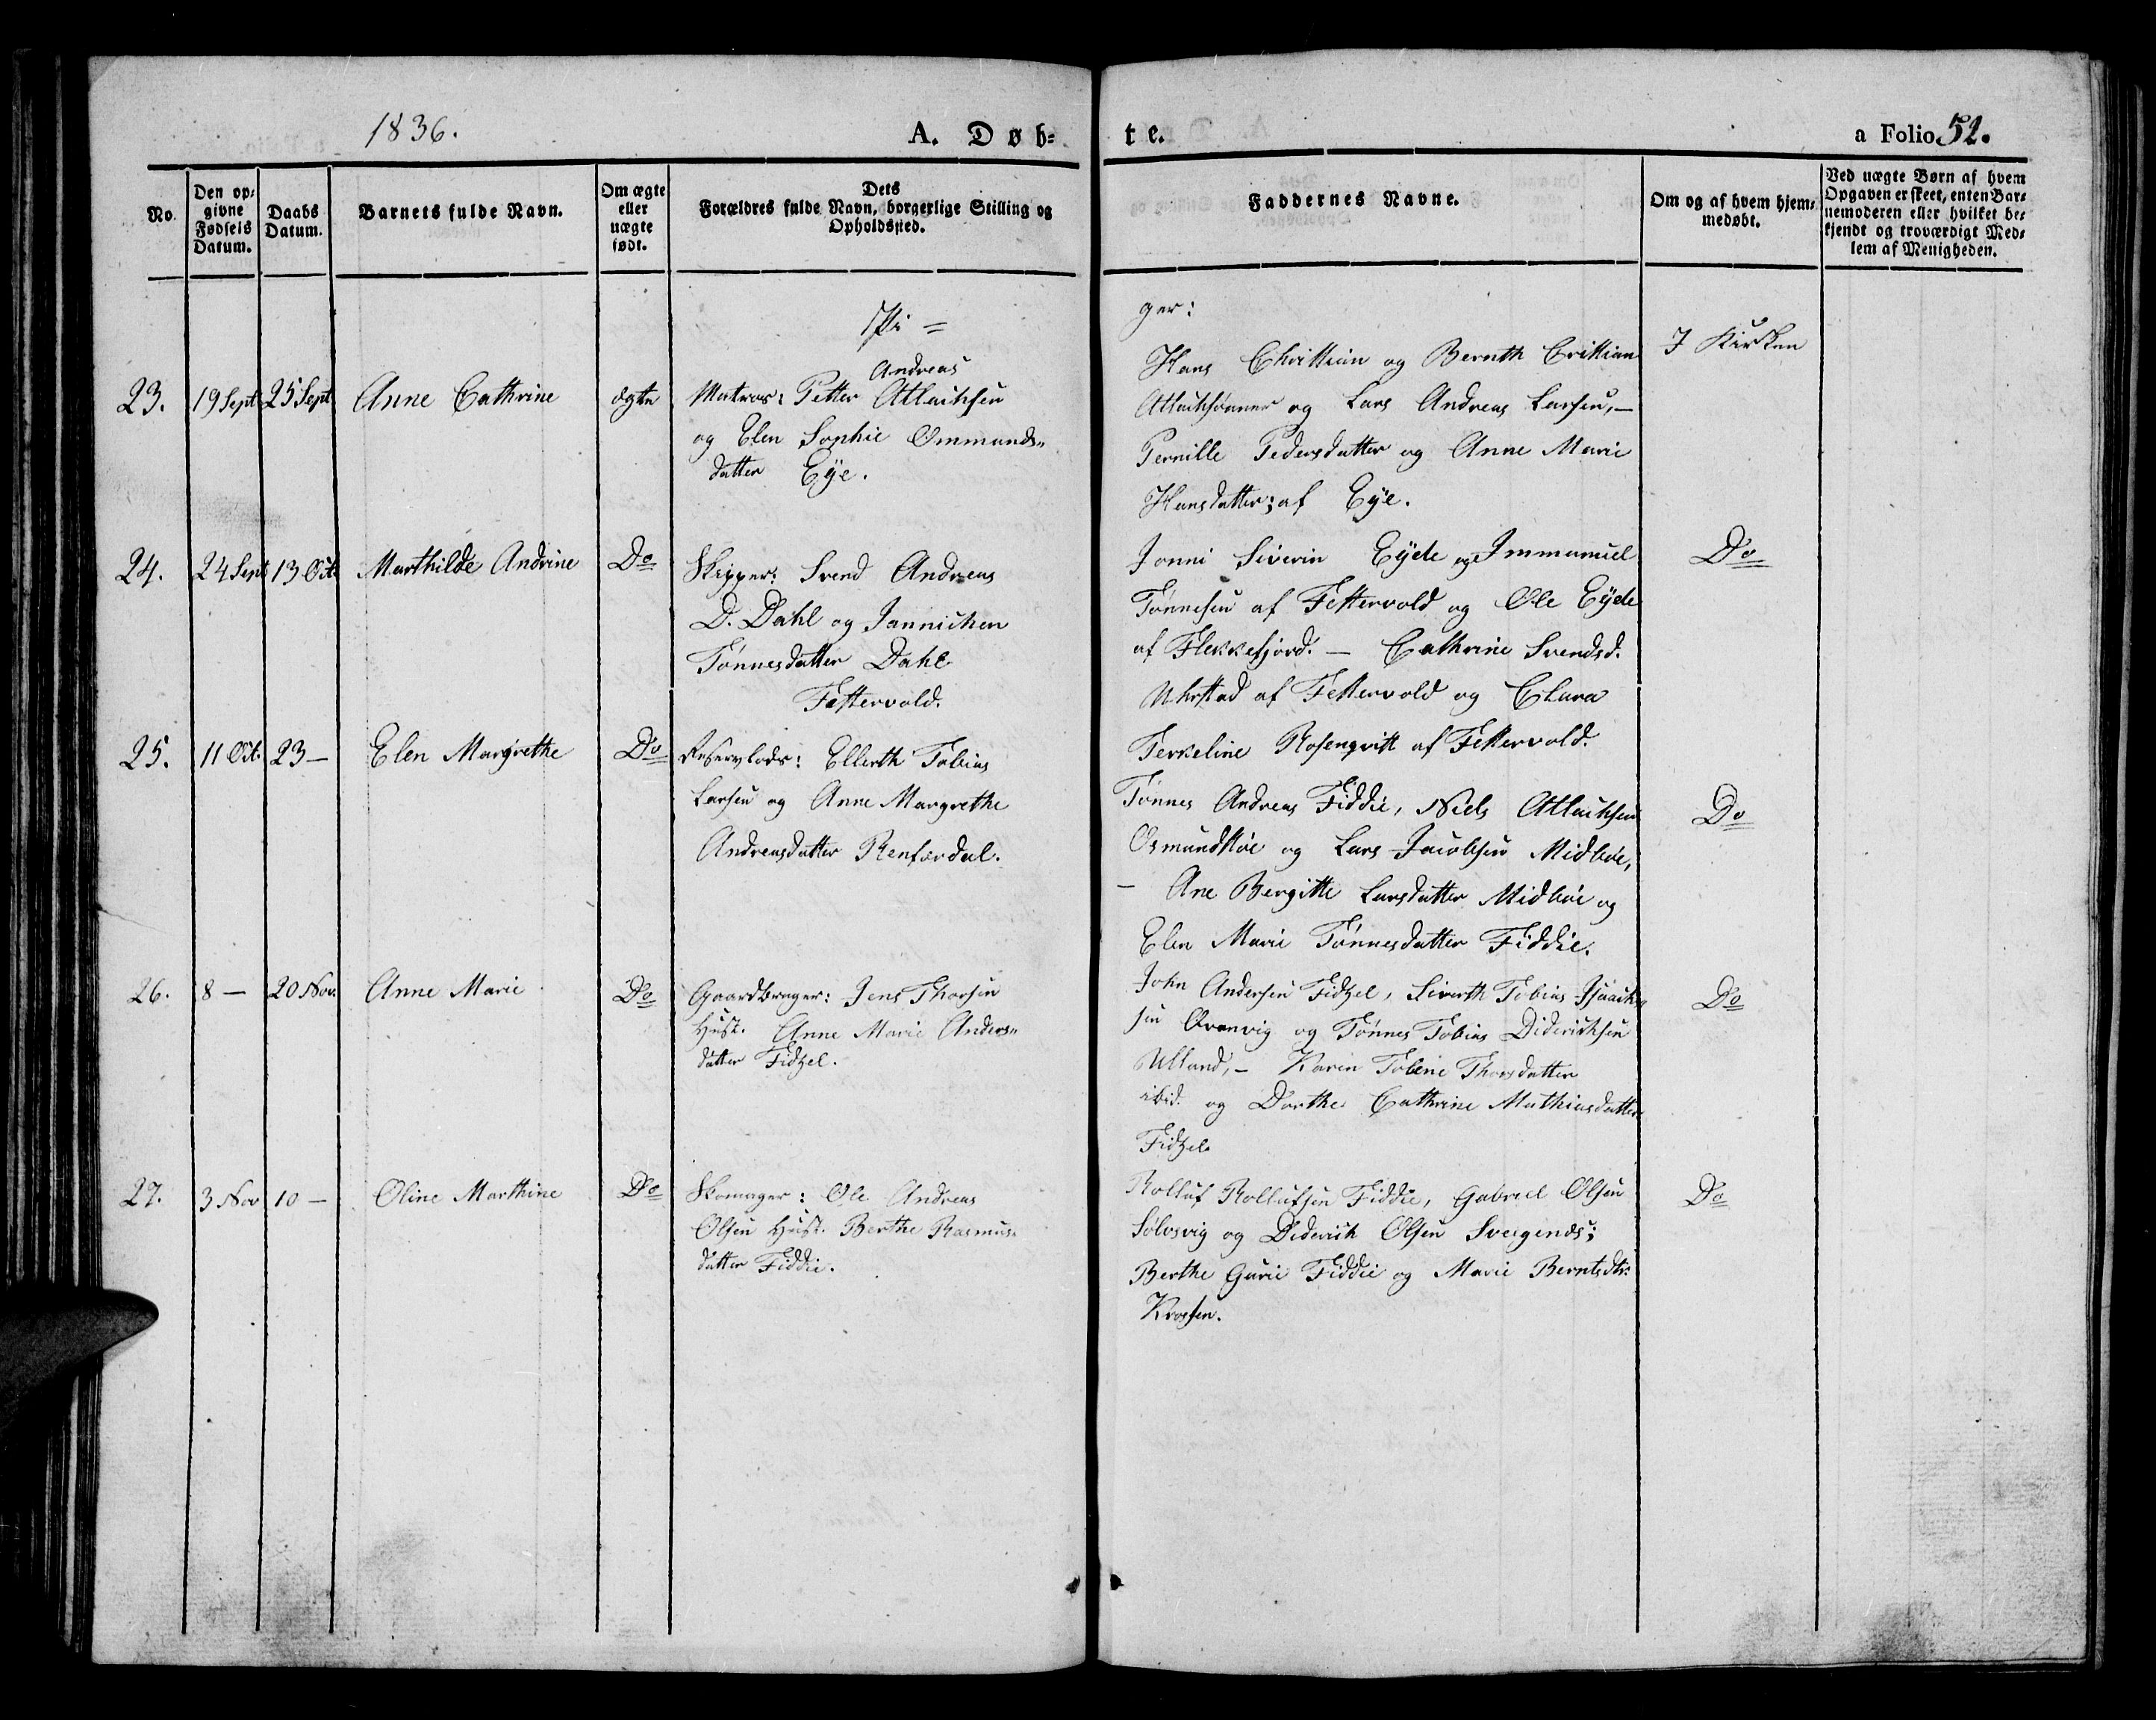 1836.
A. Døb=
te.
a Folio 52.
No.
Den op=
givne
Fødsels
Datum.
Daabs
Datum.
Barnets fulde Navn.
Om ægte
eller
uægte
født.
Dets
Forældres fulde Navn, borgerlige Stilling og
Opholdssted.
Faddernes Navne.
Om og af hvem hjem=
medøbt.
Ved uægte Børn af hvem
Opgaven er skeet, enten Bar=
nemoderen eller hvilket be=
kjendt og troværdigt Med=
lem af Menigheden.
ger:
23. 19 Sept 25 Sept Anne Cathrine ægte
Andreas
Matros: Petter Atlachsen
og Elen Sophie Ommunds"
datter Eye.
Hans Christian og Bernth Cristian
Atlachsønner og Lars Andreas Larsen,—
Pernille Pedersdatter og Anne Marie
Hansdatter; af Eye.
I Kirken
24. 24 Sept 13 Oct Marthilde Andrine Do
Skipper: Svend Andreas
D. Dahl og Jannichen
Tønnesdatter Dahl
Fettervold.
Jonni Siverin Eyde og Immanuel
Tønnesen af Fettervold og Ole Eyde
af Flekkefjord. — Cathrine Svendsd.
Uhrstad af Fettervold og Clara
Terkeline Rosenqvist af Fettervold.
Do
25. 11 Oct. 23 — Elen Margrethe Do
Reservlods: Ellerth Tobias
Larsen og Anne Margrethe
Andreasdatter Renfærdal.
Tønnes Andreas Fiddie, Niels Atlachsen
Osmundskøe og Lars Jacobsen Midbøe,
— Ane Bergitte Larsdatter Midbøe og
Elen Marie Tønnesdatter Fiddie.
Do
26. 8 — 20 Nov. Anne Marie Do
Gaardbruger: Jens Thorsen
Hust. Anne Marie Anders"
datter Fidzel.
John Andersen Fidzel, Siverth Tobias Isaach
sen Qvanvig og Tønnes Tobias Diderichsen
Ulland,— Karen Tobine Thorsdatter
ibid. og Dorthe Cathrine Mathiasdatter
Fidzel.
Do
27. 3 Nov 10 — Oline Marthine Do
Skomager: Ole Andreas
Olsen Hust. Berthe Rasmus=
datter Fiddie.
Rolluf Rollufsen Fiddie, Gabriel Olsen
Sølvsvig og Diderich Olsen Sveigends;
Berthe Gurie Fiddie og Marie Berntsdtr.
Krossen.
Do